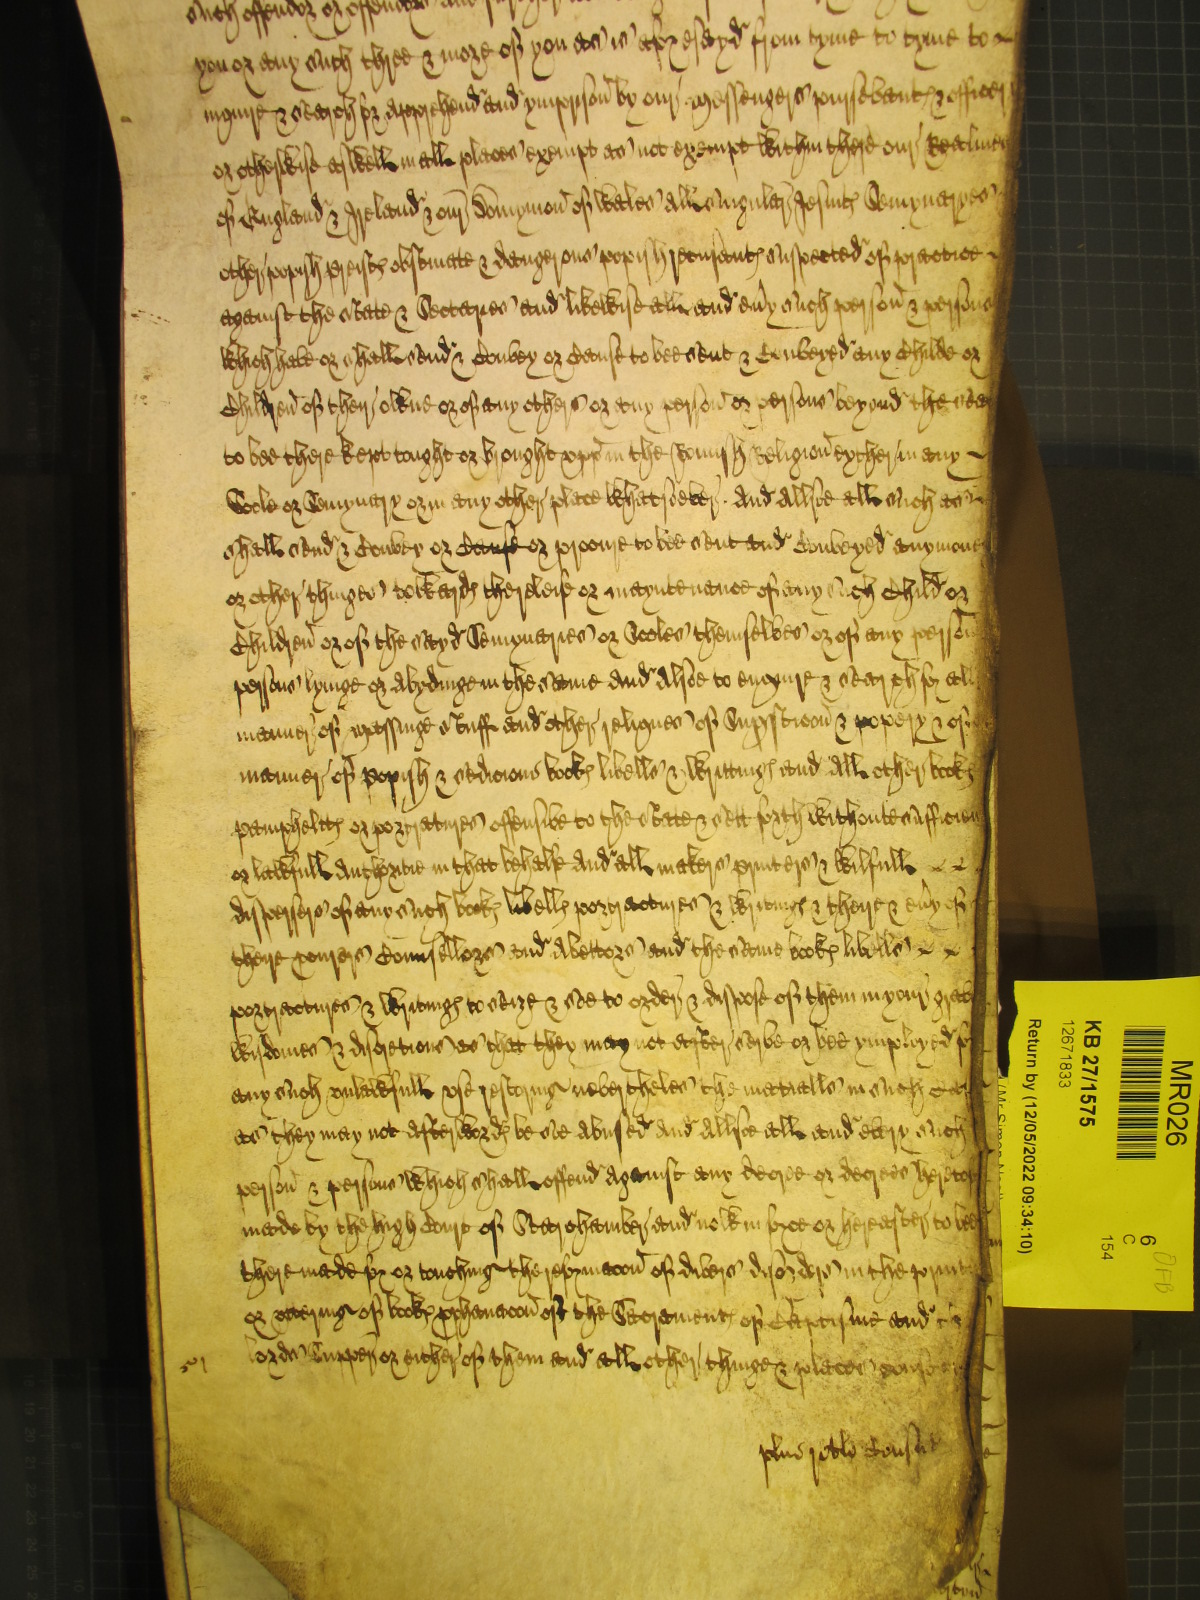 such offendor or offendors and
you or any such three & more of you as is aforesayd from tyme to tyme to
inquire & search for apprehend and ymprison by our messengers pursevants & officers
or otherwise aswell in all places exempt as not exempt within these our Realmes
of England & Ireland & our Domynion of Wales all & singular Jesuits Semynaryes
other popish preists obstinate & dangerous popish recusants suspected of practice
against the state & Sectaries and likewise all and eny such person & persons
which have or shall send & Convey or Cause to bee sent & Conveyed any Childe or
Children of their owne or of any others or any person or persons beyond the seas
to bee there kept tought or brought upp in the Romish Religion eyther in any
Scole or Semynary or in any other place whatsoever. And Allsoe all such as
shall send & Convey or Cause or procure to bee sent and Conveyed any mony
or other thinges towards the releife or mayntenance of any such Child or
Children or of the sayd Semynaries or Scoles themselves or of any person
persons lyinge or Abydinge in the same And Alsoe to enquire & search for all
manner of massinge stuff and other reliques of Supsticion & popery & of
manner of Popish & sedicious books libells & writtings and All other books
pamphelets or portratures offensive to the state & sett forth withoute sufficien
or lawfull Authoritie in that behalfe And all makers printers & wilfull
dispersers of any such books libells portractures & writings & there & eny of
there Counsellors and Abettors and the same books libells
portractures & writings to seize & soe to order & dispose of them in your grave
wisdomes & discretions as that they may not after serve or bee ymployed for
any such unlawfull use restoring nevertheles the materialls in such
as they may not afterwords be soe abused And Allsoe all and every such
person & persons which shall offend against any decree or decrees heretofo
made by the high Court of Starchamber and now in force or hereafter to bee
there made for or touching the reformacion of divers disorders in the printi
or uttering of books prophanacion of the Sacraments of Baptisme and the
lords Supper or either of them and all other things & places
KB 27/1575
12671833
Return by (12/05/2022 09:34:10)
MR026
6
C
154